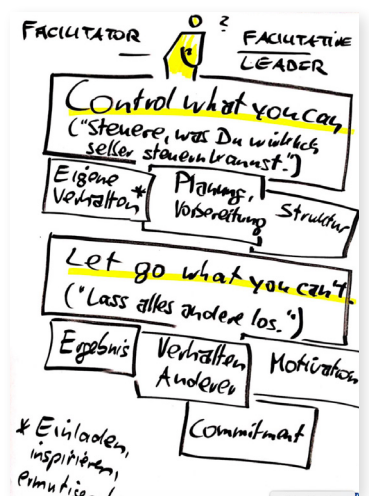 ?
FACILITATOR
FACILITATIVE
LEADER
Control what you can
("Steuere, was Du wirklich
selber steuern kannst.")
Eigene
Verhalten *
Planung,
Vorbereitung
Struktur
Let go what you can't
("Lass alles andere los.")
Ergebnis
Verhalten
Anderer
Motivation
Commitment
* Einladen,
inspirieren,